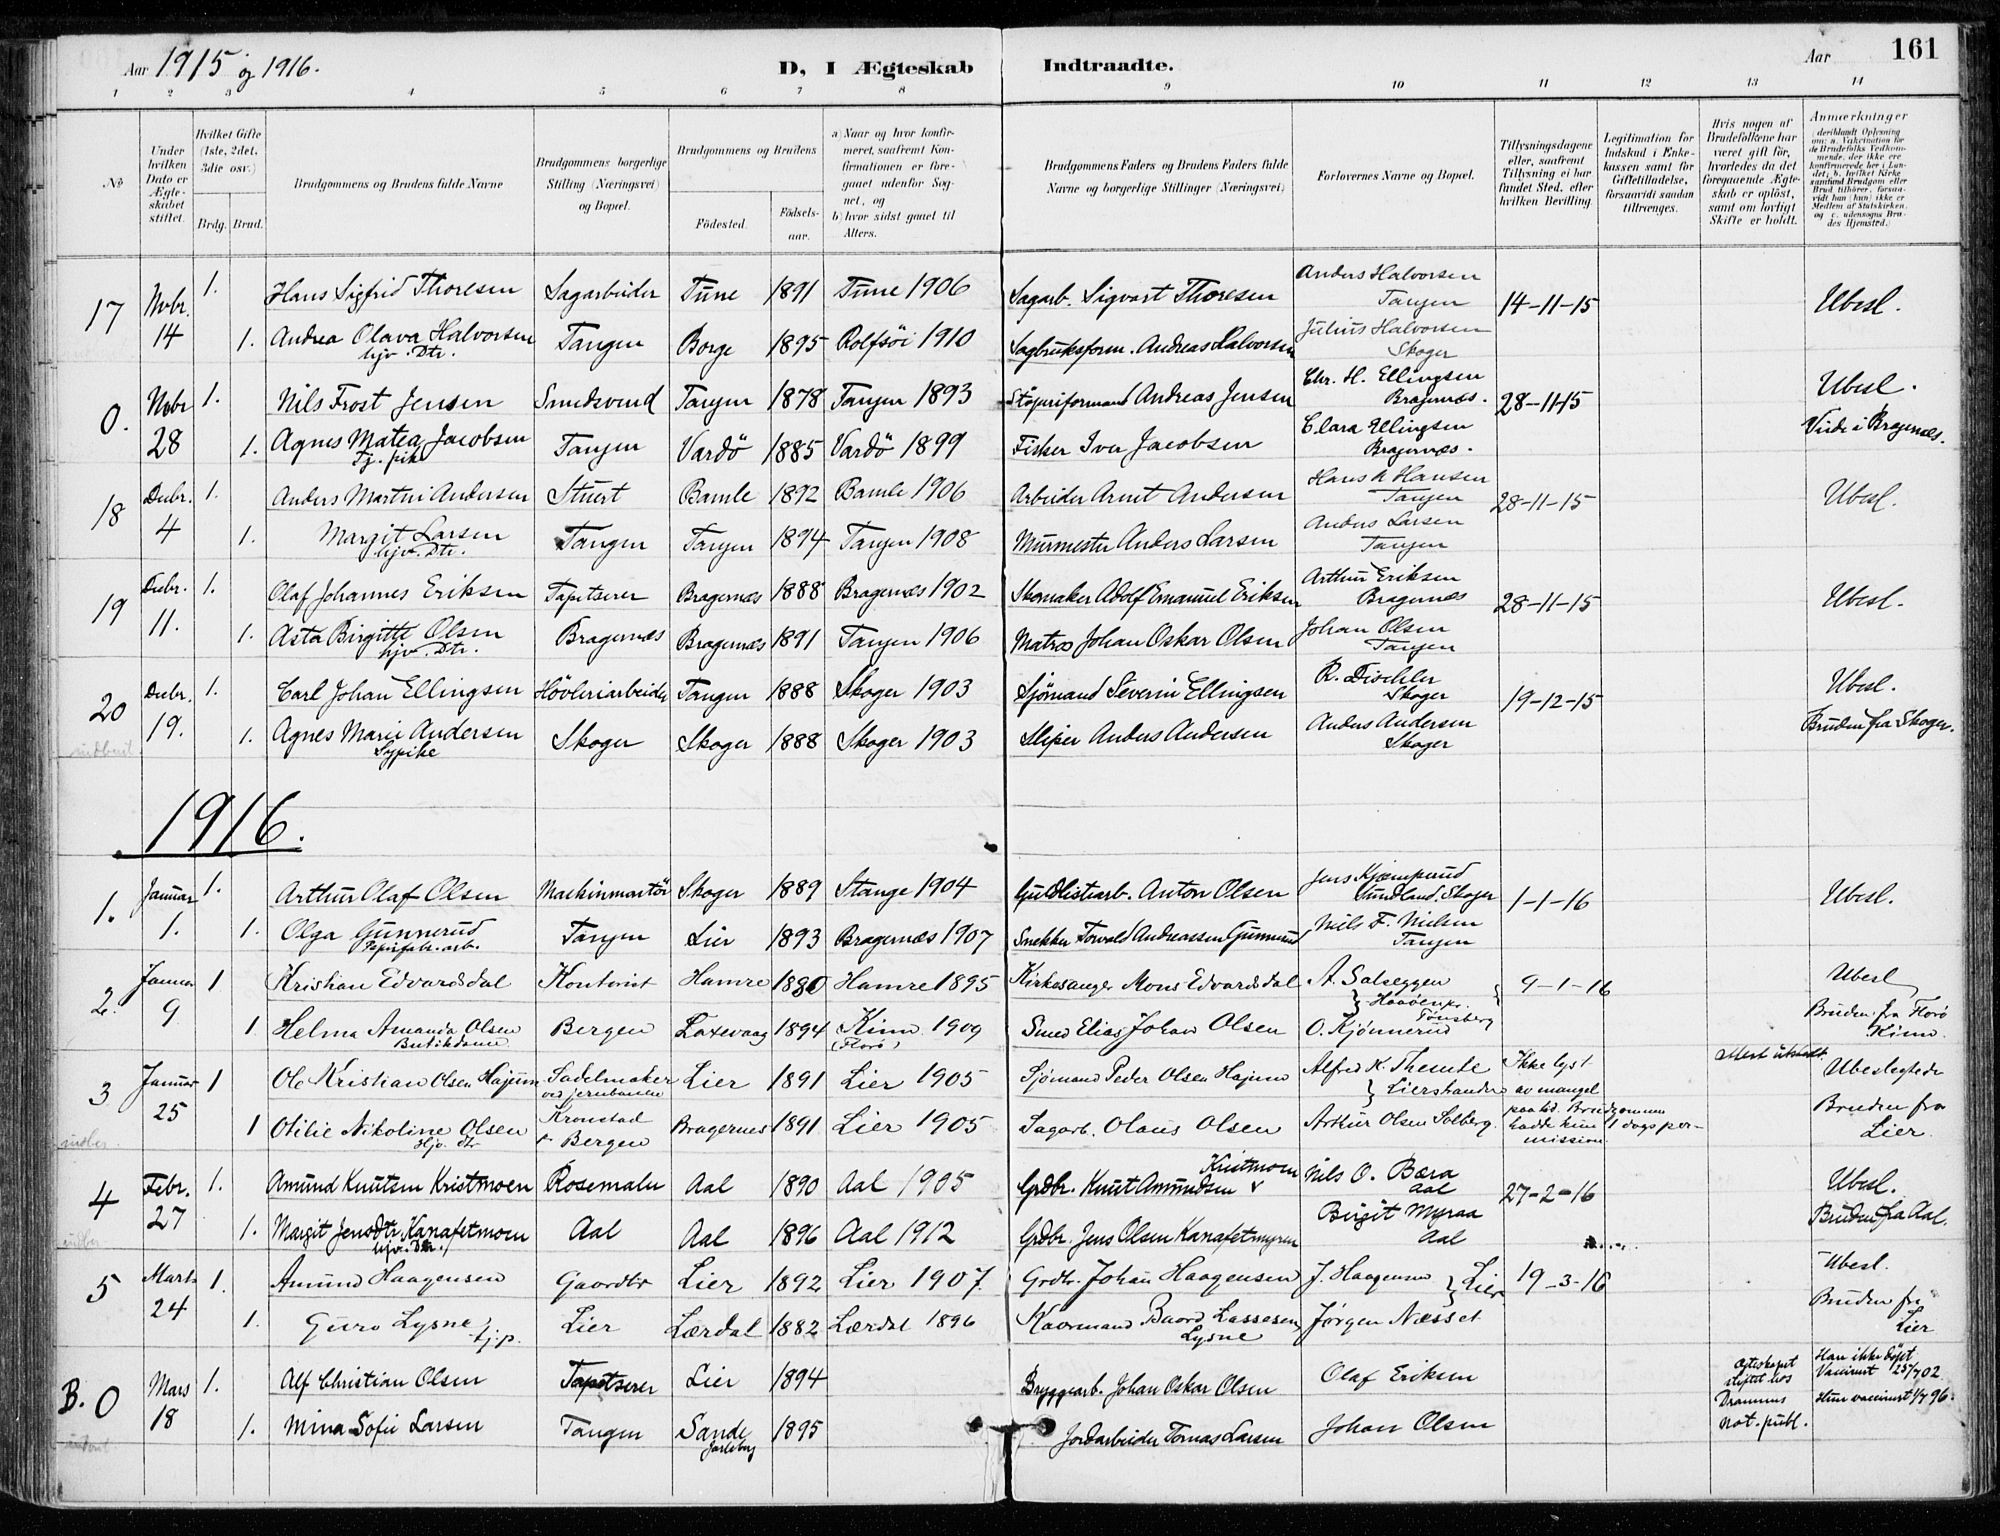 Aar 1915 og 1916.
D, I Ægteskab Indtraadte.
Aar 161
1 2 3 4 5 6 7 8 9 10 11 12 13 14
No
Under hvilken Dato er Ægteskabet stiftet.
Hvilket Gifte (1ste, 2det, 3die osv.)
Brdg. Brud.
Brudgommens og Brudens fulde Navne
Brudgommens borgerlige Stilling (Næringsvei) og Bopæl.
Brudgommens og Brudens
Födested.
Födselsaar.
a) Naar og hvor konfirmeret, saafremt Konfirmationen er foregaaet udenfor Sognet, og
b) hvor sidst gaaet til Alters.
Brudgommens Faders og Brudens Faders fulde Navne og borgerlige Stillinger (Næringsvei)
Forlovernes Navne og Bopæl.
Tillysningsdagene eller, saafremt Tillysning ei har fundet Sted, efter hvilken Bevilling.
Legitimation for Indskud i Enkekassen samt for Giftetilladelse, forsaavidt saadan tiltrænges.
Hvis nogen af Brudefolkene har været gift för, hvorledes da det foregaaende Ægteskab er oplöst, samt om lovligt Skifte er holdt.
Anmærkninger
(deriblandt Oplysning om: a. Vakcination for de Brudefolks Vedkommende, der ikke ere konfirmerede her i Landet; b. hvilket Kirkesamfund Brudgom eller Brud tilhörer, forsaavidt han (hun) ikke er Medlem af Statskirken, og c. udensogns Brudes Hjemsted.)
17 Nvbr. 1. Hans Sigfrid Thoresen Sagarbeider Tune 1891 Tune 1906 Sagarb. Sigvart Thoresen Anders Halvorsen Tangen 14-11-15 Ubesl.
14 1. Andrea Olava Halvorsen hjv. Dtr. Tangen Borge 1895 Rolfsöi 1910 Sagbruksform. Andreas Halvorsen Julius Halvorsen Skoger
0. Nvbr 1. Nils Frost Jensen Smedsvend Tangen 1878 Tangen 1893 Støperiformand Andreas Jensen Chr. H. Ellingsen Bragernæs. 28-11-15 Ubesl.
28 1. Agnes Matea Jacobsen Tj. pik Tangen Vardö 1885 Vardö 1899 Fisker Iver Jacobsen Clara Ellingsen Bragernæs. Viede i Bragernæs.
18 Debr. 1. Anders Martin Andersen Stuert Bamle 1892 Bamle 1906 Arbeider Arnt Andersen Hans A Hansen Tangen 28-11-15 Ubesl.
4 1. Margit Larsen hjv. Dtr. Tangen Tangen 1894 Tangen 1908 Murmester Anders Larsen Anders Larsen Tangen
19 Debr. 1. Olaf Johannes Eriksen Tapetserer Bragernæs 1888 Bragernæs 1902 Skomaker Adolf Emanuel Eriksen Arthur Eriksen Bragernæs 28-11-15 Ubesl.
11. 1. Asta Birgitte Olsen hjv. Dtr. Bragernæs Bragernæs 1891 Tangen 1906 Matros Johan Oskar Olsen Johan Olsen Tangen
20 Debr. 1. Carl Johan Ellingsen Hövleriarbeider Tangen 1888 Skoger 1903 Sjömand Severin Ellingsen R. Dischler Skoger 19-12-15 Ubesl.
19. 1. Agnes Marie Andersen Sypike Skoger Skoger 1888 Skoger 1903 Sliper Anders Andersen Anders Andersen Skoger Bruden fra Skoger.
1916.
1. Januar 1. Arthur Olaf Olsen Maskinmontör Skoger 1889 Stange 1904 Guldlistarb. Anton Olsen Jens Kjæmperud Sundland. Skoger 1-1-16 Ubesl.
1. 1. Olga Gunnerud Papirfabr. arb. Tangen Lier 1893 Bragernæs 1907 Snekker Torvald Andreassen Gunnerud Niels F. Nielsen Tangen
2. Januar 1 Kristian Edvardsdal Kontorist Hamre 1880 Hamre 1895 Kirkesanger Mons Edvardsdal A. Salseggen 9-1-16 Ubesl
9 1 Helma Amanda Olsen Butikdame Bergen Laxevaag 1894 Kinn 1909 (Florö) Smed Elias Johan Olsen O. Kjönnerud Tönsberg Bruden fra Florö Kinn.
3 Januar 1 Ole Kristian Olsen Hajum Sadelmaker ved jernbanen Lier 1891 Lier 1905 Sjömand Peder Olsen Hajum Alfred K. Themte Lierstranden Ikke lyst av mangel Ubeslegtede
25 1 Otilie Nikoline Olsen Hjv. dtr Kronstad Bergen Bragernes 1891 Lier 1905 Sagarb. Olaus Olsen Arthur Olsen Solberg. paa tid. Brudgommen hadde kun 1 dags permission. Bruden fra Lier.
4 Febr. 1. Amund Knutsen Kristmoen Rosemaler Aal 1890 Aal 1905 Grdbr. Knut Amundsen Kristmoen Nils O. Bæra Aal 27-2-16 Ubesl.
27 1. Margit Jensdtr Kanafetmoen hjv. Dtr. Aal Aal 1896 Aal 1912 Grdbr. Jens Olsen Kanafetmyren Birgit Myraa Aal Bruden fra Aal.
5 Marts 1. Amund Haagensen Gaardbr Lier 1892 Lier 1907. Grdbr. Johan Haagensen J. Haagensen Lier 19-3-16 Ubesl.
24 1. Guro Lysne tj.p. Lier Lærdal 1882 Lærdal 1896 Kaarmand Baard Lassesen Lysne Jørgen Næsset Bruden fra Lier
B. 0 Mars 1. Alf Christian Olsen Tapetserer Lier 1894 Bryggearb. Johan Oskar Olsen Olaf Eriksen Ægteskapet stiftet hos Han ikke döpt Vaccinert 25/7 02.
18 1. Mina Sofie Larsen Tangen Sande Jarlsberg 1895 Jordarbeider Tomas Larsen Johan Olsen Drammens not. publ. Hun vaccinert 1/7 96.